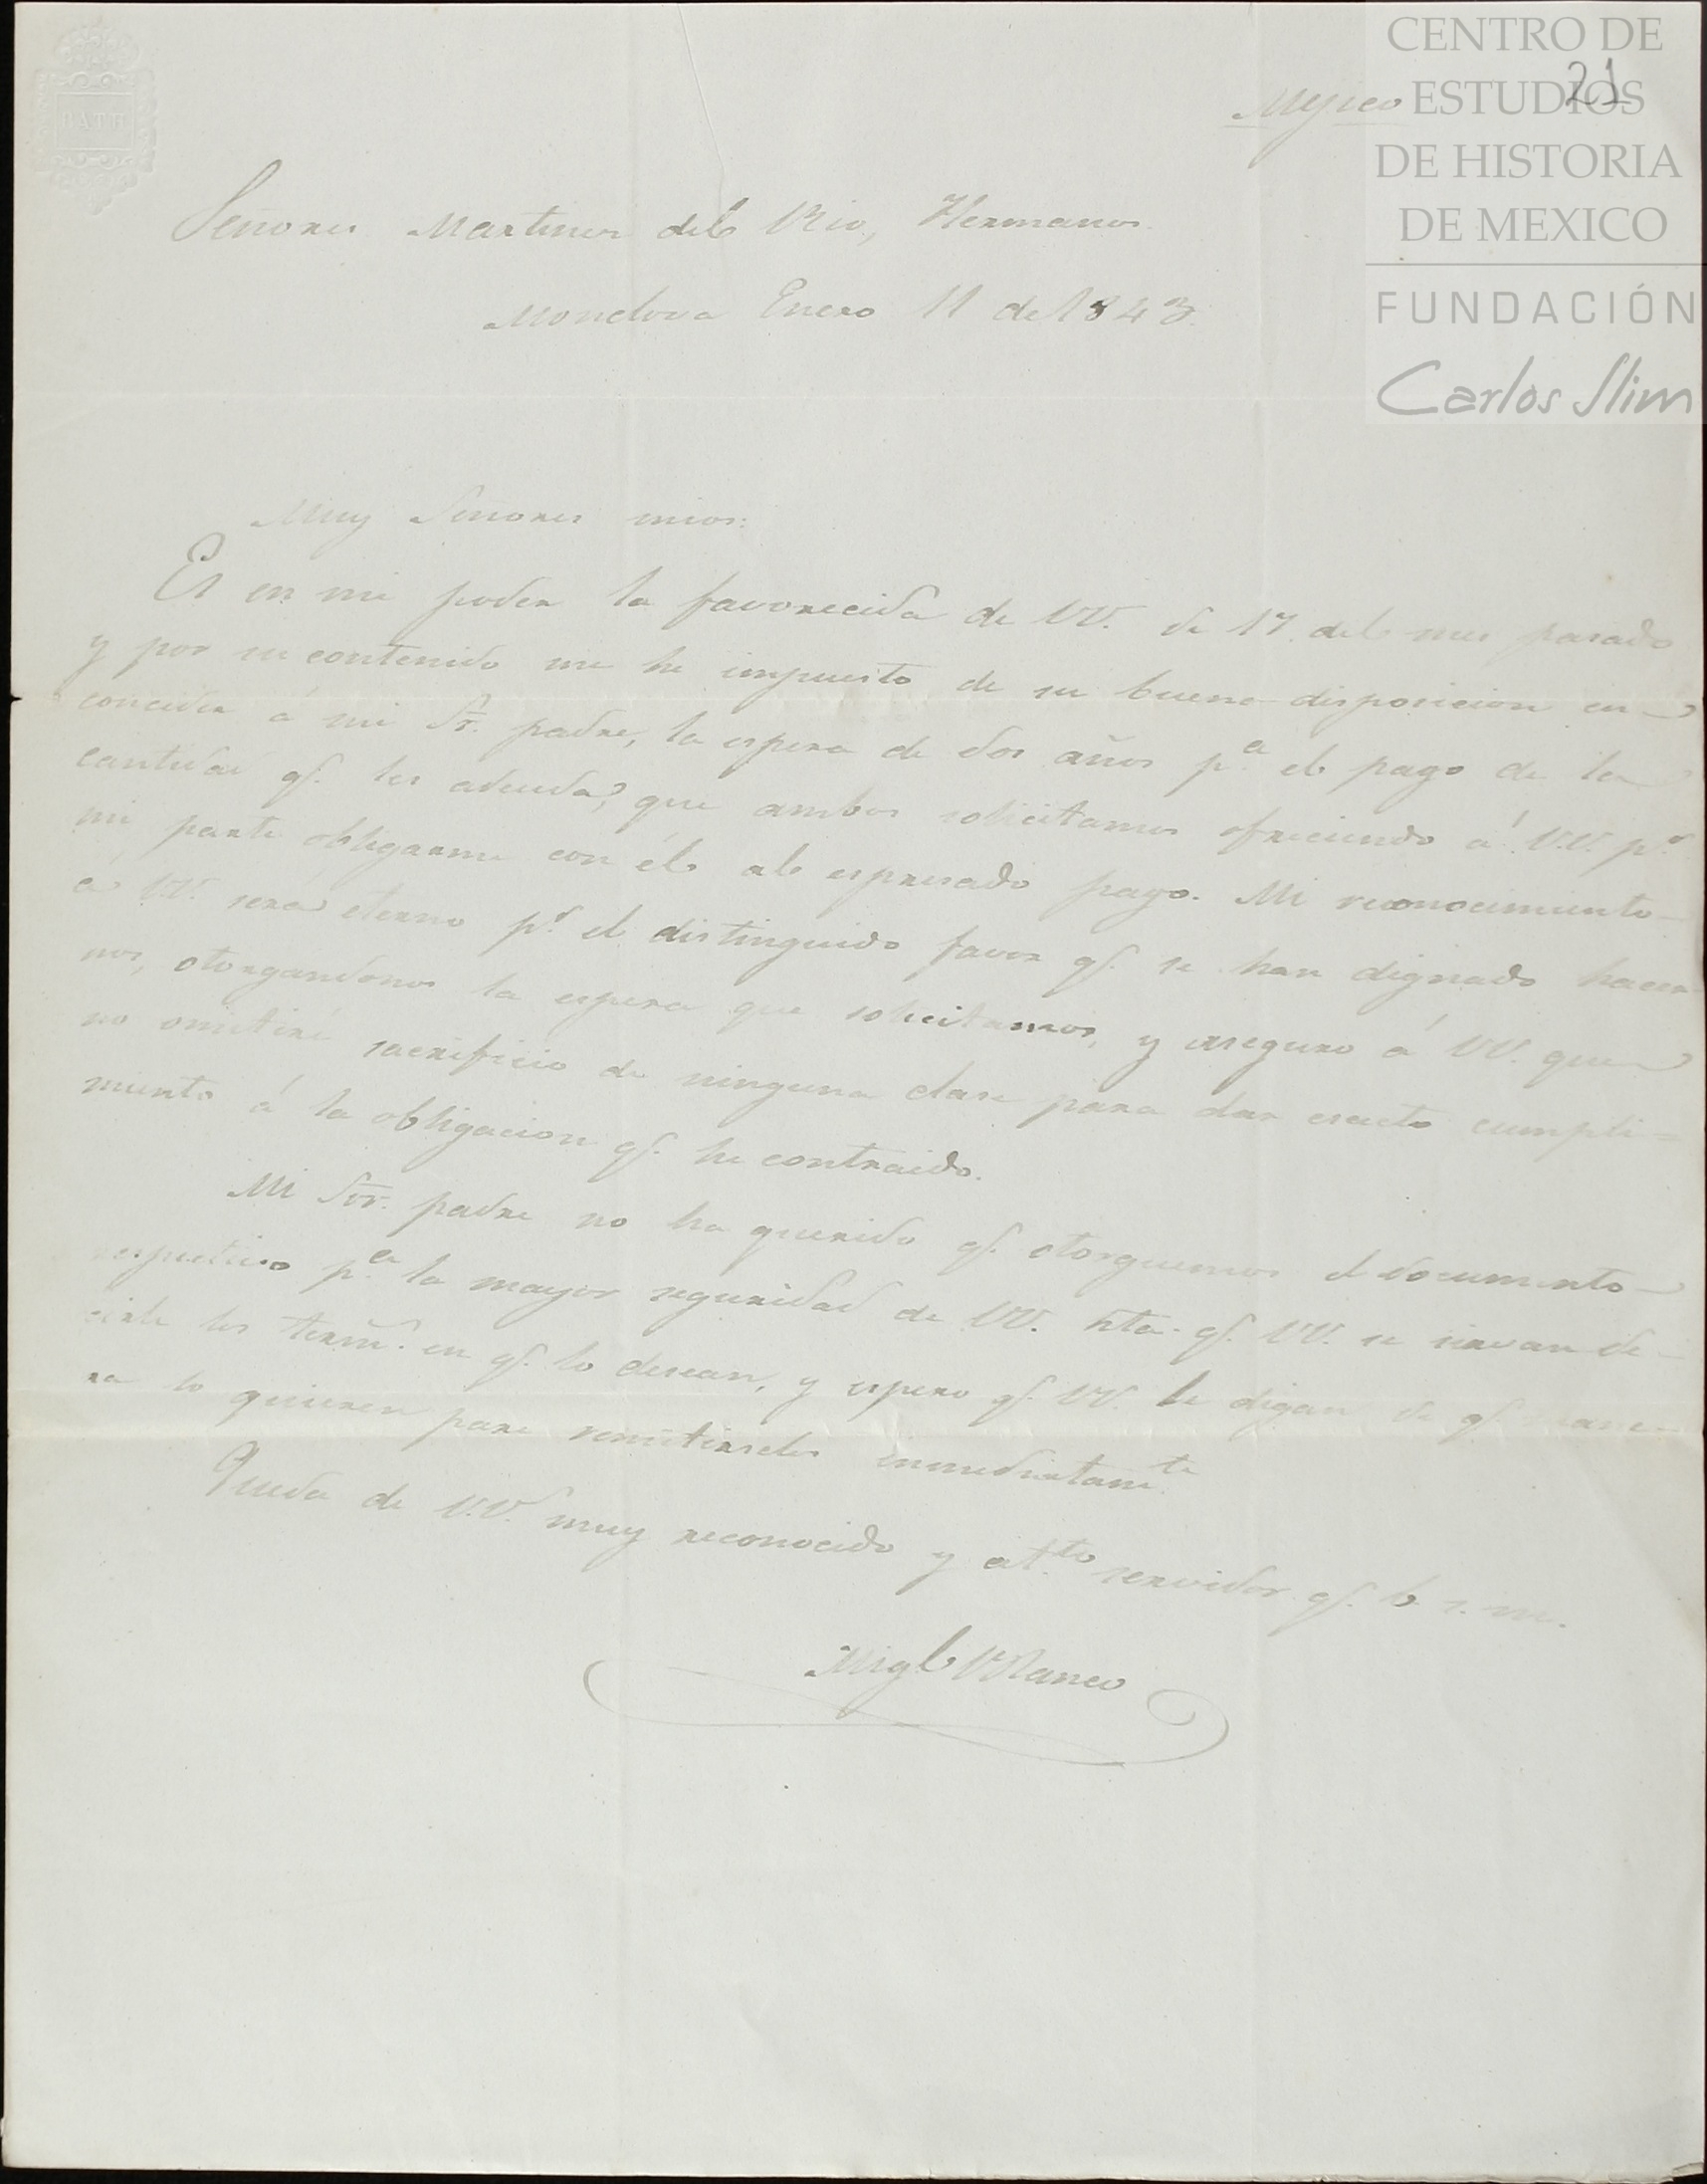 CENTRO DE
ESTUDIOS
DE HISTORIA
DE MEXICO
FUNDACIÓN
Carlos Slim
21
BATH
Mejico
Señores Martinez del Rio, Hermanos
Monclova Enero 11 de 1843.
Muy Señores mios:
Es en mi poder la favorecida de VV. de 17. del mes pasado
y por su contenido me he impuesto de su buena disposicion en
conceder á mi Sr. padre, la espera de dos años pª el pago de la
cantidad q. les adeuda, que ambos solicitamos ofreciendo á VV. pr
mi parte obligarme con él al espresado pago. Mi reconocimiento
á VV. será eterno pr el distinguido favor q. se han dignado hacer
nos, otorgandonos la espera que solicitamos, y aseguro á VV. que
no omitiré sacrificio de ninguna clase para dar esacto cumpli=
miento á la obligacion q. he contraido.
Mi Sor. padre no ha querido q. otorguemos el documento
respectivo pª la mayor seguridad de VV. hta. q. VV. se sirvan de-
cirle los term.s en q. lo desean, y espero q. VV. le digan de q. mane-
ra lo quieren para remitirselos inmediatamte
Queda de V.V. muy reconocido y at.to servidor q. b. s. m.
Migl Blanco